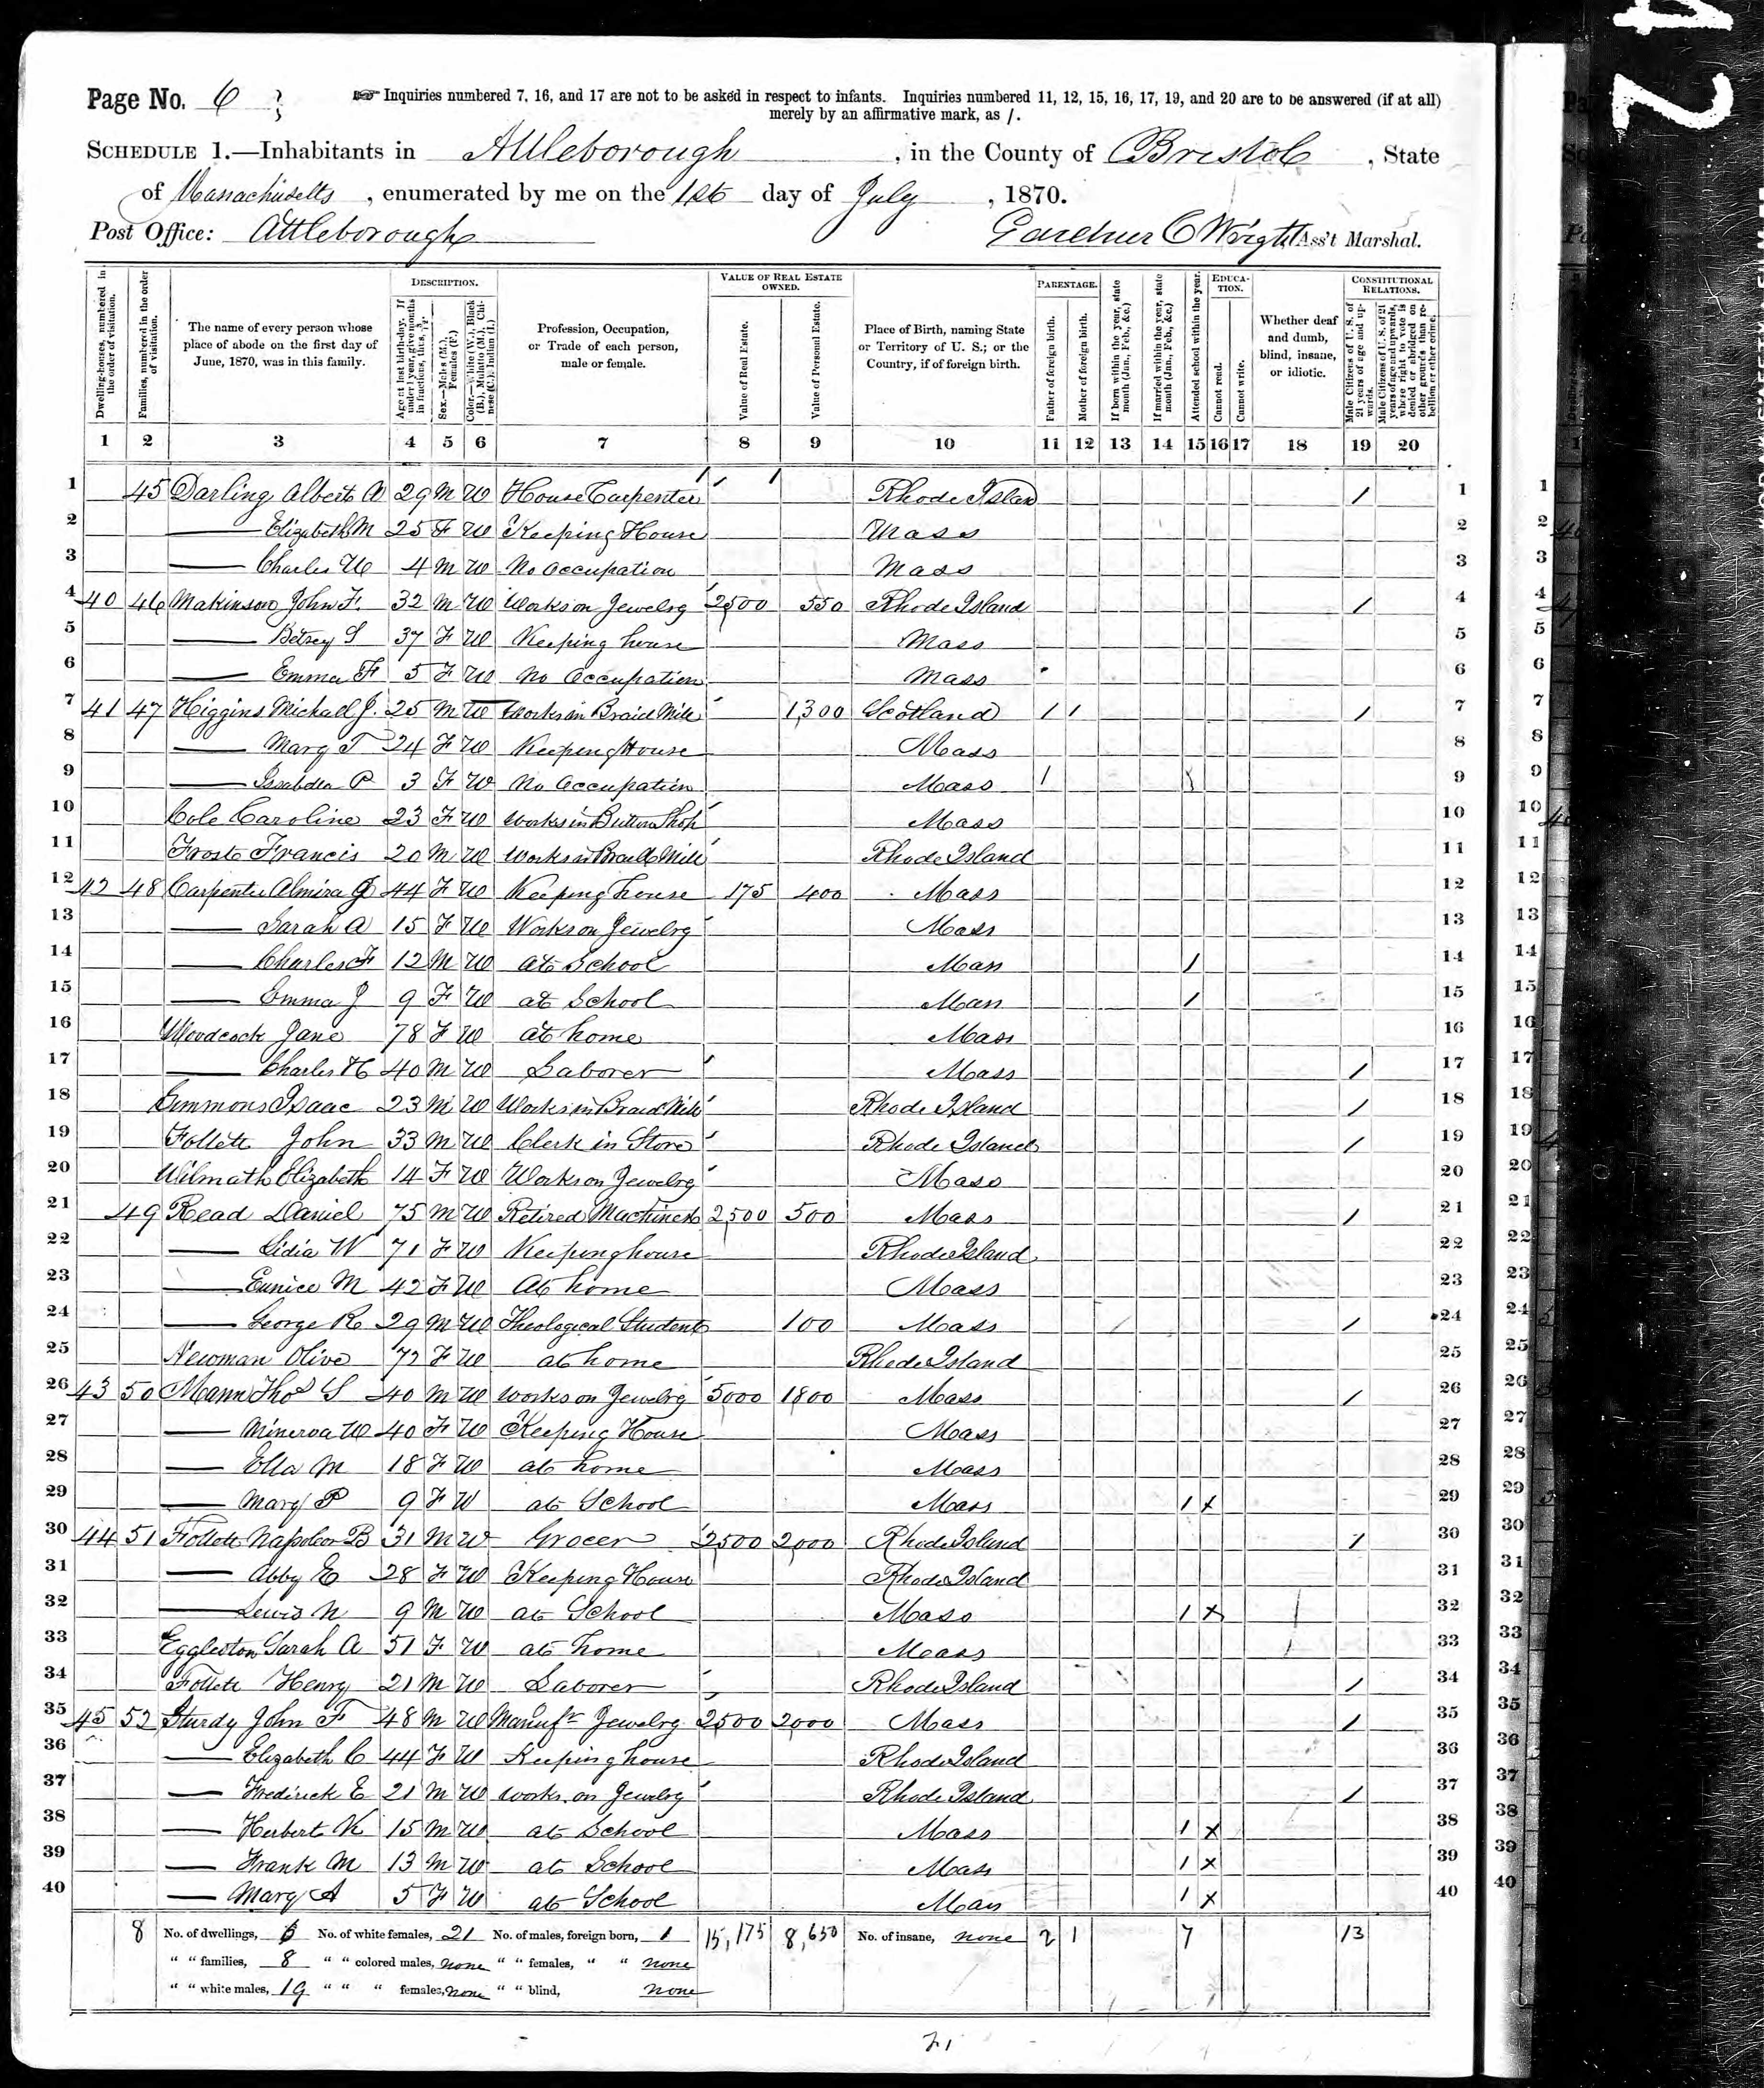 Page No. 6
☞ Inquiries numbered 7, 16, and 17 are not to be asked in respect to infants. Inquiries numbered 11, 12, 15, 16, 17, 19, and 20 are to be answered (if at all)
merely by an affirmative mark, as /.
SCHEDULE 1.—Inhabitants in Attleborough, in the County of Bristol, State
of Massachusetts, enumerated by me on the 1st day of July, 1870.
Post Office: Attleborough Gardner C Wright Ass't Marshal.
Dwelling-houses, numbered in the order of visitation.
Families, numbered in the order of visitation.
The name of every person whose place of abode on the first day of June, 1870, was in this family.
DESCRIPTION.
Age at last birth-day. If under 1 year, give months in fractions, thus, 3/12.
Sex.—Males (M.), Females (F.)
Color.—White (W.), Black (B.), Mulatto (M.), Chinese (C.), Indian (I.)
Profession, Occupation, or Trade of each person, male or female.
VALUE OF REAL ESTATE OWNED.
Value of Real Estate.
Value of Personal Estate.
Place of Birth, naming State or Territory of U. S.; or the Country, if of foreign birth.
PARENTAGE.
Father of foreign birth.
Mother of foreign birth.
If born within the year, state month (Jan., Feb., &c.)
If married within the year, state month (Jan., Feb., &c.)
Attended school within the year.
EDUCATION.
Cannot read.
Cannot write.
Whether deaf and dumb, blind, insane, or idiotic.
CONSTITUTIONAL RELATIONS.
Male Citizens of U. S. of 21 years of age and upwards.
Male Citizens of U. S. of 21 years of age and upwards, where right to vote is denied or abridged on other grounds than rebellion or other crime.
1 2 3 4 5 6 7 8 9 10 11 12 13 14 15 16 17 18 19 20
1 45 Darling Albert A 29 M W House Carpenter Rhode Islan / 1
2 — Elizabeth M 25 F W Keeping House Mass 2
3 — Charles W 4 M W No Occupation Mass 3
4 40 46 Makinson John F. 32 M W Works on Jewelry 2500 550 Rhode Island / 4
5 — Betsey S 37 F W Keeping house Mass 5
6 — Emma F 5 F W No Occupation Mass 6
7 41 47 Higgins Michael J. 25 M W Works in Braid Mill 1,300 Scotland / / / 7
8 — Mary T 24 F W Keeping House Mass 8
9 — Issabella P 3 F W No Occupation Mass / 9
10 Cole Caroline 23 F W Works in Button Shop Mass 10
11 Frost Francis 20 M W Works in Braid Mill Rhode Island 11
12 42 48 Carpenter Almira J 44 F W Keeping house 175 400 Mass 12
13 — Sarah A 15 F W Works on Jewelry Mass 13
14 — Charles F 12 M W at School Mass / 14
15 — Emma J 9 F W at School Mass / 15
16 Woodcock Jane 78 F W at home Mass 16
17 — Charles H 40 M W Laborer Mass / 17
18 Simmons Isaac 23 M W Works in Braid Mill Rhode Island / 18
19 Follett John 33 M W Clerk in Store Rhode Island / 19
20 Wilmath Elizabeth 14 F W Works on Jewelry Mass 20
21 49 Read Daniel 75 M W Retired Machinest 2,500 500 Mass / 21
22 — Lidia W 71 F W Keeping house Rhode Island 22
23 — Eunice M 42 F W At home Mass 23
24 — George R 29 M W Theological Student 100 Mass / 24
25 Newman Olive 72 F W at home Rhode Island 25
26 43 50 Mann Thos S 40 M W works on Jewelry 5000 1800 Mass / 26
27 — Minerva W 40 F W Keeping House Mass 27
28 — Ella M 18 F W at home Mass 28
29 — Mary P 9 F W at School Mass / x 29
30 44 51 Follett Napoleon B 31 M W Grocer 2500 2,000 Rhode Island / 30
31 — Abby E 28 F W Keeping House Rhode Island 31
32 — Lewis N 9 M W at School Mass / x 32
33 Eggleston Sarah A 51 F W at home Mass 33
34 Follett Henry 21 M W Laborer Rhode Island / 34
35 45 52 Sturdy John F 48 M W Manufr Jewelry 2500 2000 Mass / 35
36 — Elizabeth C 44 F W Keeping house Rhode Island 36
37 — Fredirick E 21 M W works on Jewelry Rhode Island / 37
38 — Herbert K 15 M W at School Mass / x 38
39 — Frank M 13 M W at School Mass / x 39
40 — Mary A 5 F W at School Mass / x 40
8 No. of dwellings, 6 No. of white females, 21 No. of males, foreign born, 1 15,175 8,650 No. of insane, none 2 1 7 13
" " families, 8 " " colored males, none " " females, " " none
" " white males, 19 " " " females, none " " blind, none